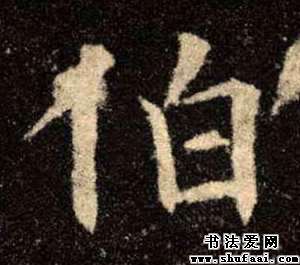 怕
书法爱网
www.shufaai.com